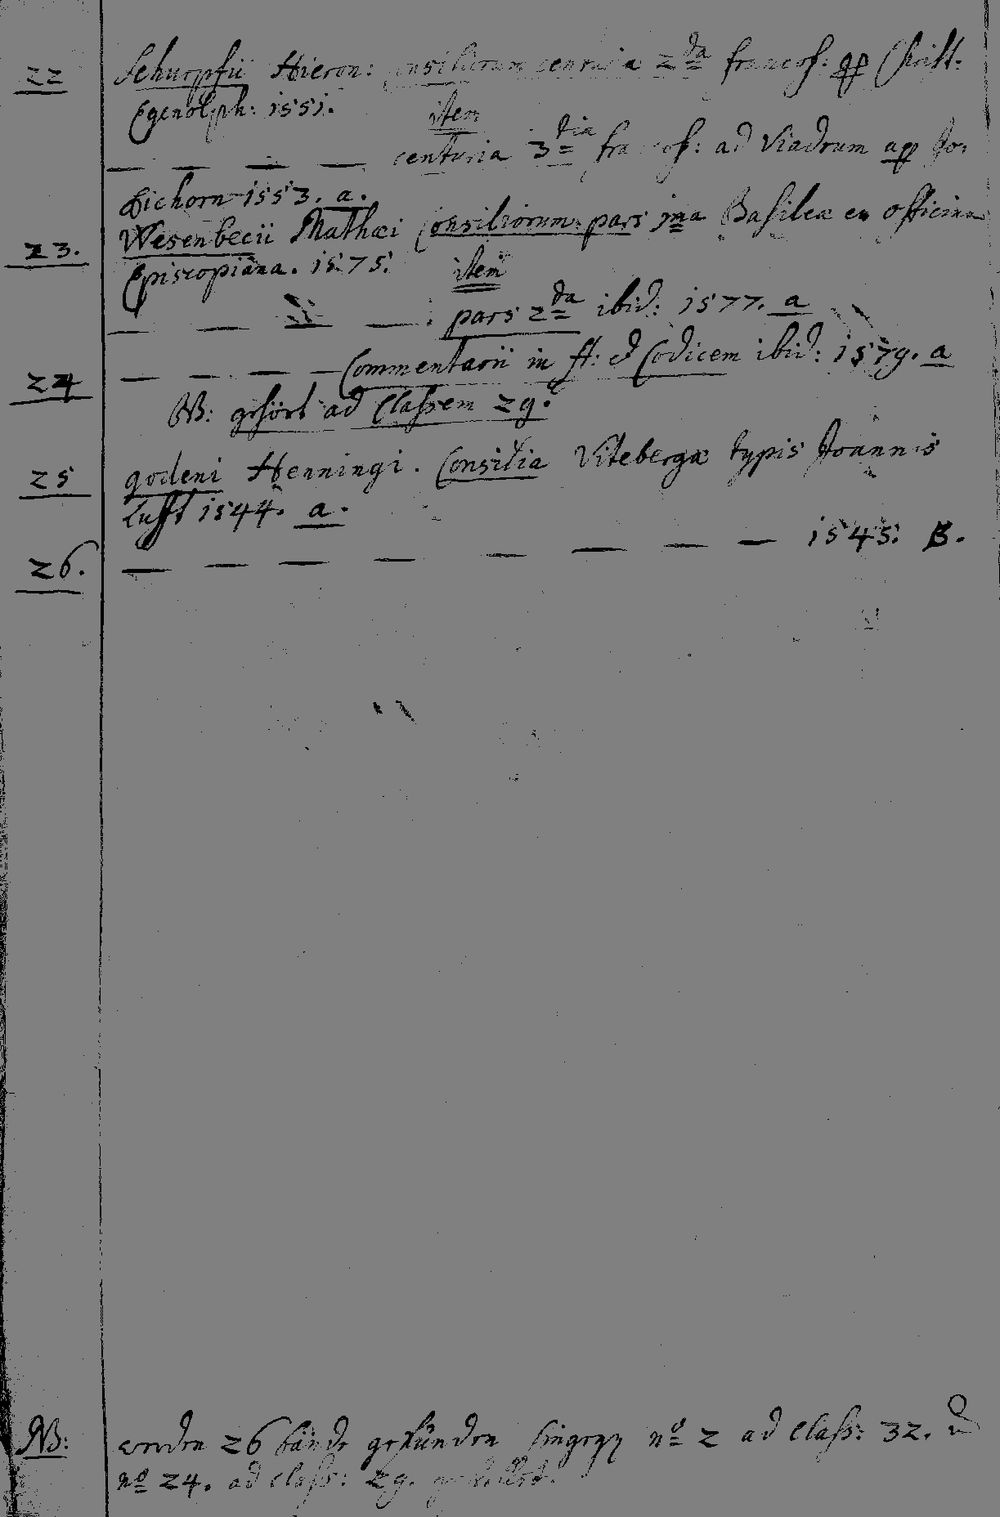 22 Schurpfii Hieron: consiliorum centuria 2da francof: app Christ:
Egenolph: 1551. item
centuria 3tia francof: ad Viadrum app Jo:
Eichorn 1553. a.
23. Wesenbecii Mathæi Consiliorum pars 1ma Basileæ ex officina
Episcopiana. 1575. item
pars 2da ibid: 1577. a
24 Commentarii in ff: & Codicem ibid: 1579. a
NB: gehört ad Classem 29.
25 godeni Henningi. Consilia Vitebergæ typis Joannis
Lufft 1544. a.
26. 1545: B.
NB: werden 26 bände gefunden hingegen no 2 ad Class: 32. und
no 24. ad Class: 29.